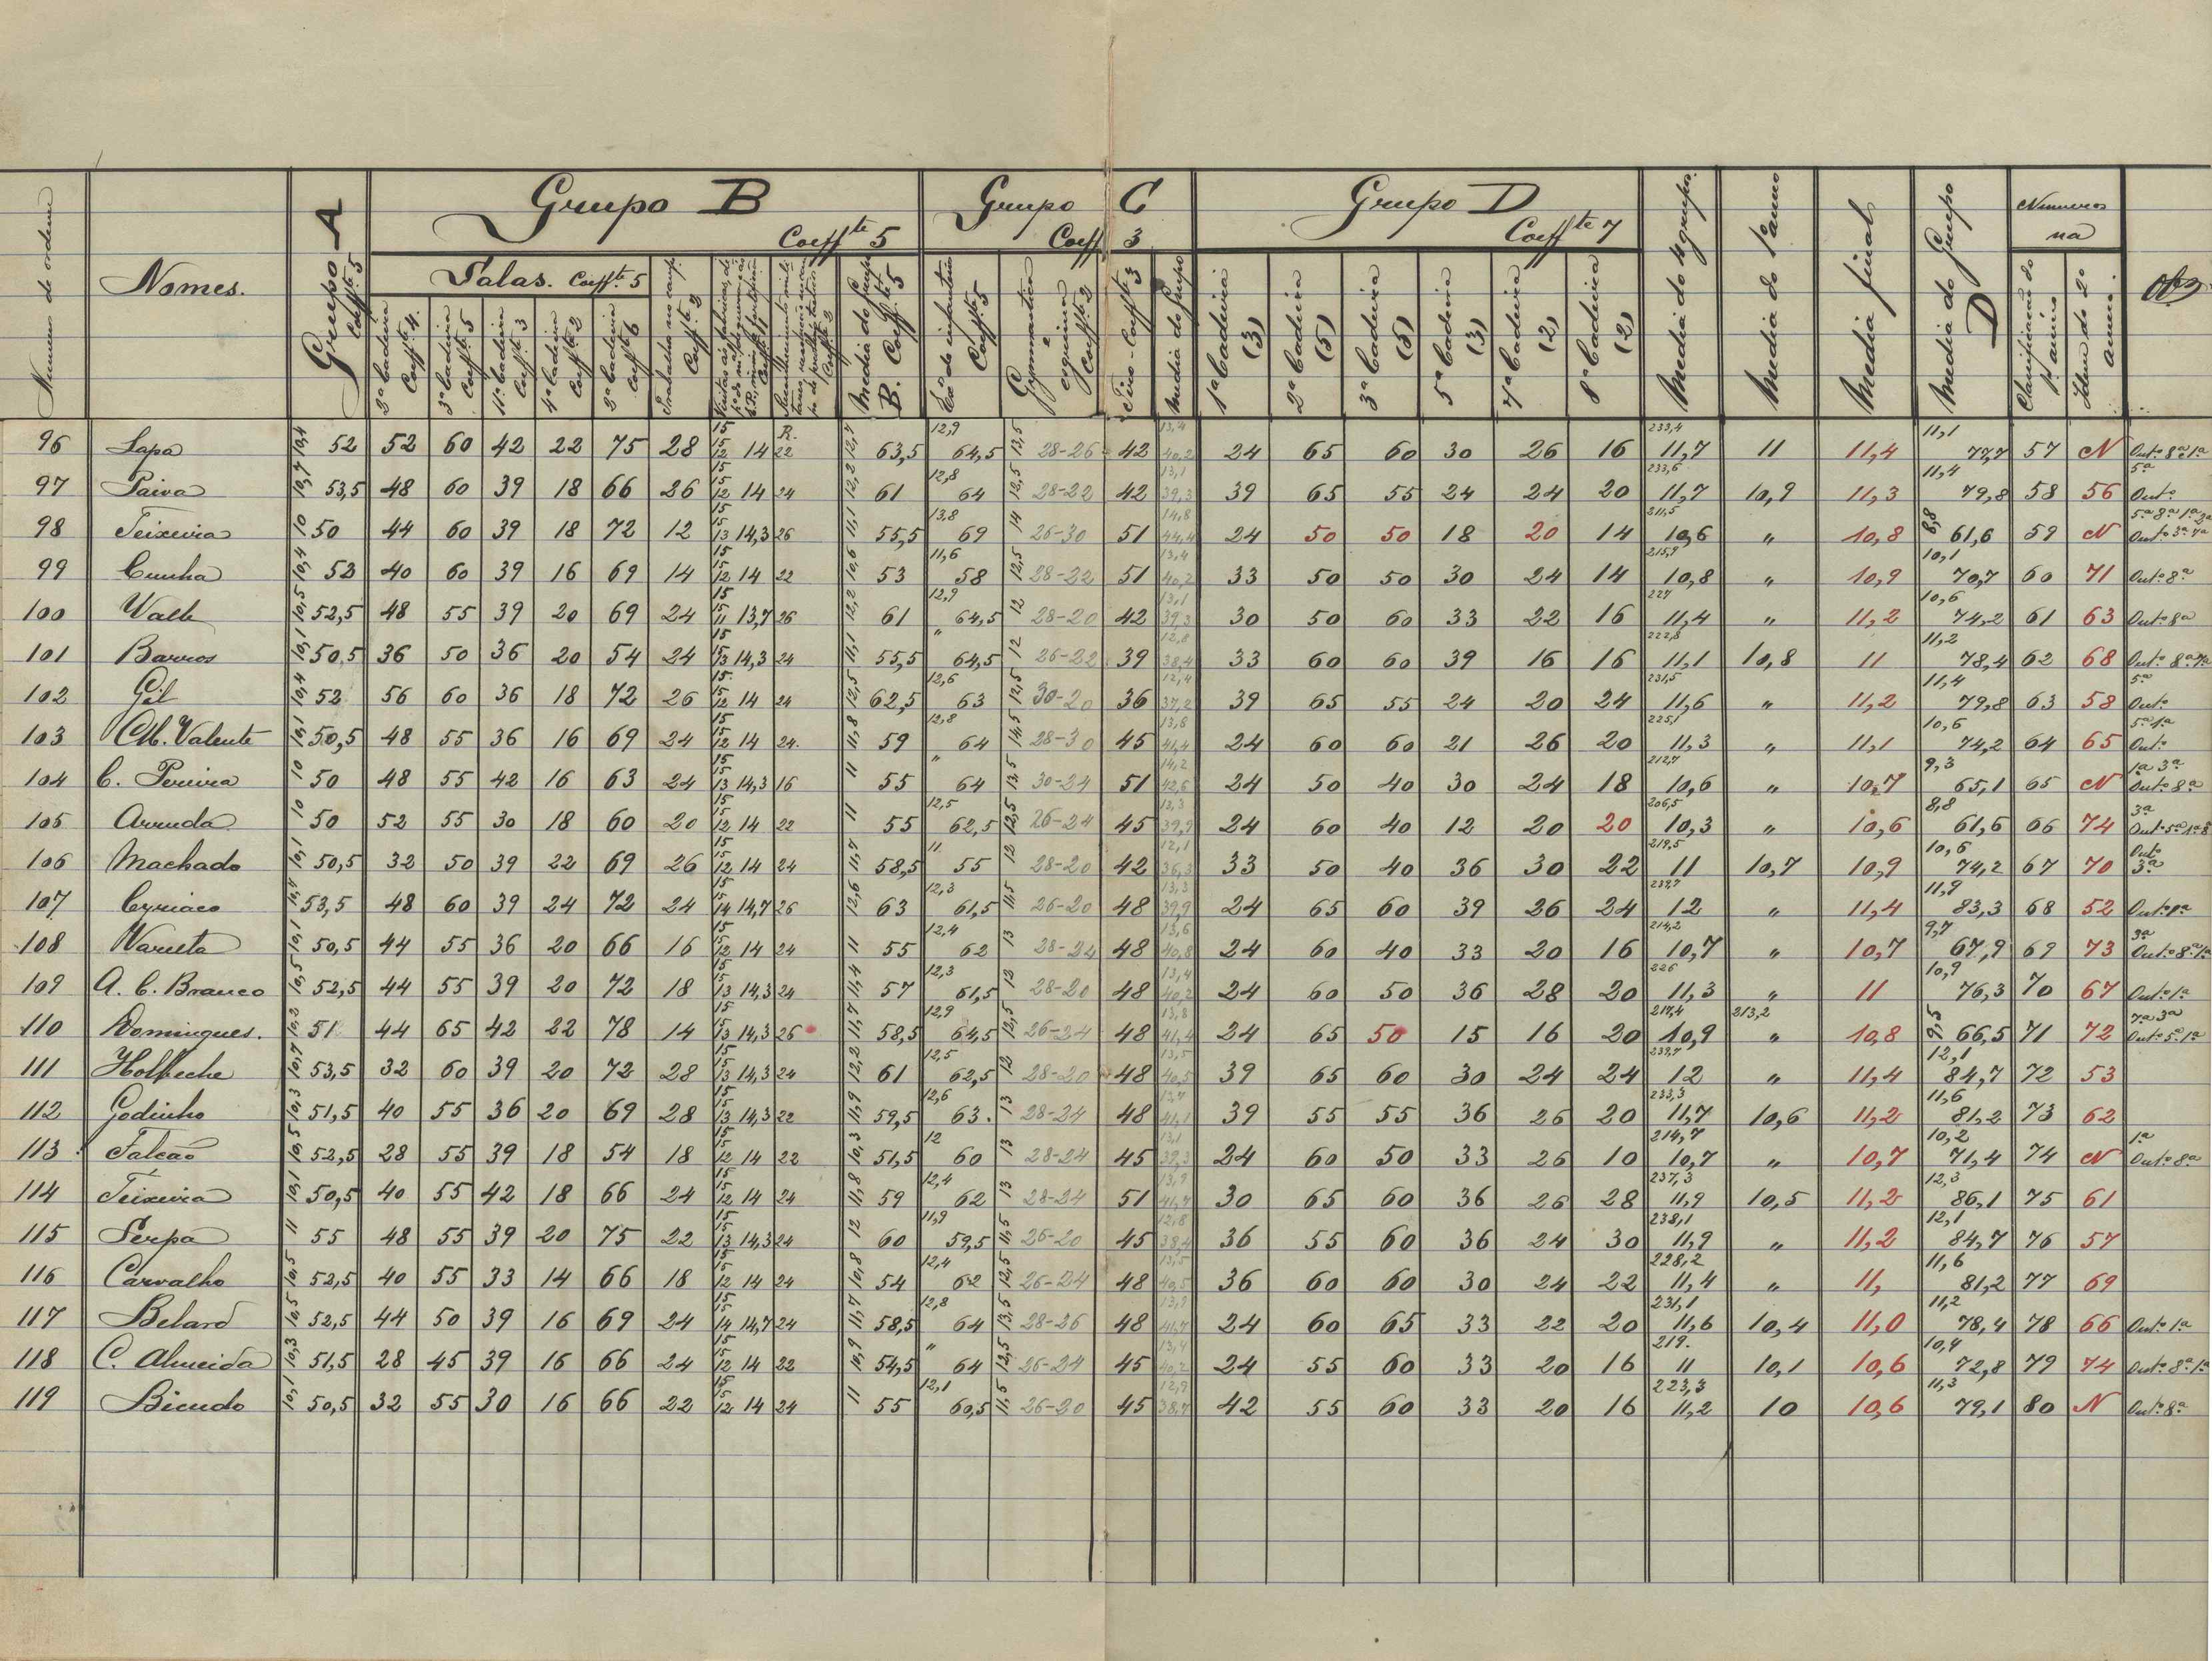 Grupo B Grupo C Grupo D Numeros
Coeff.te 5 Coeff. 3 Coeff.te 7 na
Numero de ordem Nomes. Grupo A Coeff.te 5 Salas. Coeff.te 5
Media de 4 grupos. Media do 1º anno Media final Media do Grupo D Classificação do 1º anno Idem do 2º anno. Obs
3ª Cadeira Coeff.te 4. 3ª Cadeira Coeff.te 5 11ª Cadeira Coeff.te 3 4ª Cadeira Coeff.te 2 3ª Cadeira Coeff.te 6 Trabalho no camp. Coeff.te 2
Media do Grupo B. Coeff.te 5 Exº de infanteria Coeff.te 5 Gymnastica e esgrima Coeff.te 2 Tiro - Coeff.te 3 Media do Grupo
1ª Cadeira (3) 2ª Cadeira (5) 3ª Cadeira (5) 5ª Cadeira (3) 7ª Cadeira (2) 8ª Cadeira (2)
96 Lapa 10,4 52 52 60 42 22 75 28 15 15 12 14 R. 22 12,7 63,5 12,9 64,5 13,5 28-26 42 13,4 40,2 24 65 60 30 26 16 233,4 11,7 11 11,4 11,1 77,7 57 N Outº 8ª 1ª
97 Paiva 10,7 53,5 48 60 39 18 66 26 15 15 12 14 24 12,2 61 12,8 64 12,5 28-22 42 13,1 39,3 39 65 55 24 24 20 233,6 11,7 10,9 11,3 11,4 79,8 58 56 5ª Outº
98 Teixeira 10 50 44 60 39 18 72 12 15 15 13 14,3 26 11,1 55,5 13,8 69 14 26-30 51 14,8 44,4 24 50 50 18 20 14 211,5 10,6 " 10,8 8,8 61,6 59 N 5ª 8ª 1ª 2ª Outº 3ª 7ª
99 Cunha 10,4 52 40 60 39 16 69 14 15 15 12 14 22 10,6 53 11,6 58 12,5 28-22 51 13,4 40,2 33 50 50 30 24 14 215,9 10,8 " 10,9 10,1 70,7 60 71 Outº 8ª
100 Valle 10,5 52,5 48 55 39 20 69 24 15 15 11 13,7 26 12,2 61 12,9 64,5 12 28-20 42 13,1 39,3 30 50 60 33 22 16 227 11,4 " 11,2 10,6 74,2 61 63 Outº 8ª
101 Barros 10,1 50,5 36 50 36 20 54 24 15 15 13 14,3 24 11,1 55,5 " 64,5 12 26-22 39 12,8 38,4 33 60 60 39 16 16 222,8 11,1 10,8 11 11,2 78,4 62 68 Outº 8ª 7ª
102 Gil 10,4 52 56 60 36 18 72 26 15 15 12 14 24 12,5 62,5 12,6 63 12,5 30-20 36 12,4 37,2 39 65 55 24 20 24 231,5 11,6 " 11,2 11,4 79,8 63 58 5ª Outº
103 M. Valente 10,1 50,5 48 55 36 16 69 24 15 15 12 14 24. 11,8 59 12,8 64 14,5 28-30 45 13,8 41,4 24 60 60 21 26 20 225,1 11,3 " 11,1 10,6 74,2 64 65 5ª 1ª Outº
104 C. Pereira 10 50 48 55 42 16 63 24 15 15 13 14,3 16 11 55 " 64 13,5 30-24 51 14,2 42,6 24 50 40 30 24 18 212,7 10,6 " 10,7 9,3 65,1 65 N 1ª 3ª Outº 8ª
105 Arruda 10 50 52 55 30 18 60 20 15 15 12 14 22 11 55 12,5 62,5 12,5 26-24 45 13,3 39,9 24 60 40 12 20 20 206,5 10,3 " 10,6 8,8 61,6 66 74 3ª Outº 5ª 1ª 8
106 Machado 10,1 50,5 32 50 39 22 69 26 15 15 12 14 24 11,7 58,5 11 55 12 28-20 42 12,1 36,3 33 50 40 36 30 22 219,5 11 10,7 10,9 10,6 74,2 67 70 Outº 3ª
107 Cyriaco 10,7 53,5 48 60 39 24 72 24 15 15 14 14,7 26 12,6 63 12,3 61,5 11,5 26-20 48 13,3 39,9 24 65 60 39 26 24 239,7 12 " 11,4 11,9 83,3 68 52 Outº 1ª
108 Varella 10,1 50,5 44 55 36 20 66 16 15 15 12 14 24 11 55 12,4 62 13 28-24 48 13,6 40,8 24 60 40 33 20 16 214,2 10,7 " 10,7 9,7 67,9 69 73 3ª Outº 8ª 1ª
109 A. C. Branco 10,5 52,5 44 55 39 20 72 18 15 15 13 14,3 24 11,4 57 12,3 61,5 12 28-20 48 13,4 40,2 24 60 50 36 28 20 226 11,3 " 11 10,9 76,3 70 67 Outº 1ª
110 Domingues. 10,2 51 44 65 42 22 78 14 15 15 13 14,3 26 11,7 58,5 12,9 64,5 12,5 26-24 48 13,8 41,4 24 65 50 15 16 20 217,4 10,9 213,2 " 10,8 9,5 66,5 71 72 7ª 3ª Outº 5ª 1ª
111 Holbeche 10,7 53,5 32 60 39 20 72 28 15 15 13 14,3 24 12,2 61 12,5 62,5 12 28-20 48 13,5 40,5 39 65 60 30 24 24 239,7 12 " 11,4 12,1 84,7 72 53
112 Godinho 10,3 51,5 40 55 36 20 69 28 15 15 13 14,3 22 11,9 59,5 12,6 63. 13 28-24 48 13,7 41,1 39 55 55 36 26 20 233,3 11,7 10,6 11,2 11,6 81,2 73 62
113 Falcão 10,5 52,5 28 55 39 18 54 18 15 15 12 14 22 10,3 51,5 12 60 13 28-24 45 13,1 39,3 24 60 50 33 26 10 214,7 10,7 " 10,7 10,2 71,4 74 N 1ª Outº 8ª
114 Teixeira 10,1 50,5 40 55 42 18 66 24 15 15 12 14 24 11,8 59 12,4 62 13 28-24 51 13,9 41,7 30 65 60 36 26 28 237,3 11,9 10,5 11,2 12,3 86,1 75 61
115 Serpa 11 55 48 55 39 20 75 22 15 15 13 14,3 24 12 60 11,9 59,5 11,5 26-20 45 12,8 38,4 36 55 60 36 24 30 238,1 11,9 " 11,2 12,1 84,7 76 57
116 Carvalho 10,5 52,5 40 55 33 14 66 18 15 15 12 14 24 10,8 54 12,4 62 12,5 26-24 48 13,5 40,5 36 60 60 30 24 22 228,2 11,4 " 11, 11,6 81,2 77 69
117 Belard 10,5 52,5 44 50 39 16 69 24 15 15 14 14,7 24 11,7 58,5 12,8 64 13,5 28-26 48 13,9 41,7 24 60 65 33 22 20 231,1 11,6 10,4 11,0 11,2 78,4 78 66 Outº 1ª
118 C. Almeida 10,3 51,5 28 45 39 16 66 24 15 15 12 14 22 10,9 54,5 " 64 12,5 26-24 45 13,4 40,2 24 55 60 33 20 16 219. 11 10,1 10,6 10,4 72,8 79 74 Outº 8ª 1ª
119 Bicudo 10,1 50,5 32 55 30 16 66 22 15 15 12 14 24 11 55 12,1 60,5 11,5 26-20 45 12,9 38,7 42 55 60 33 20 16 223,3 11,2 10 10,6 11,3 79,1 80 N Outº 8ª